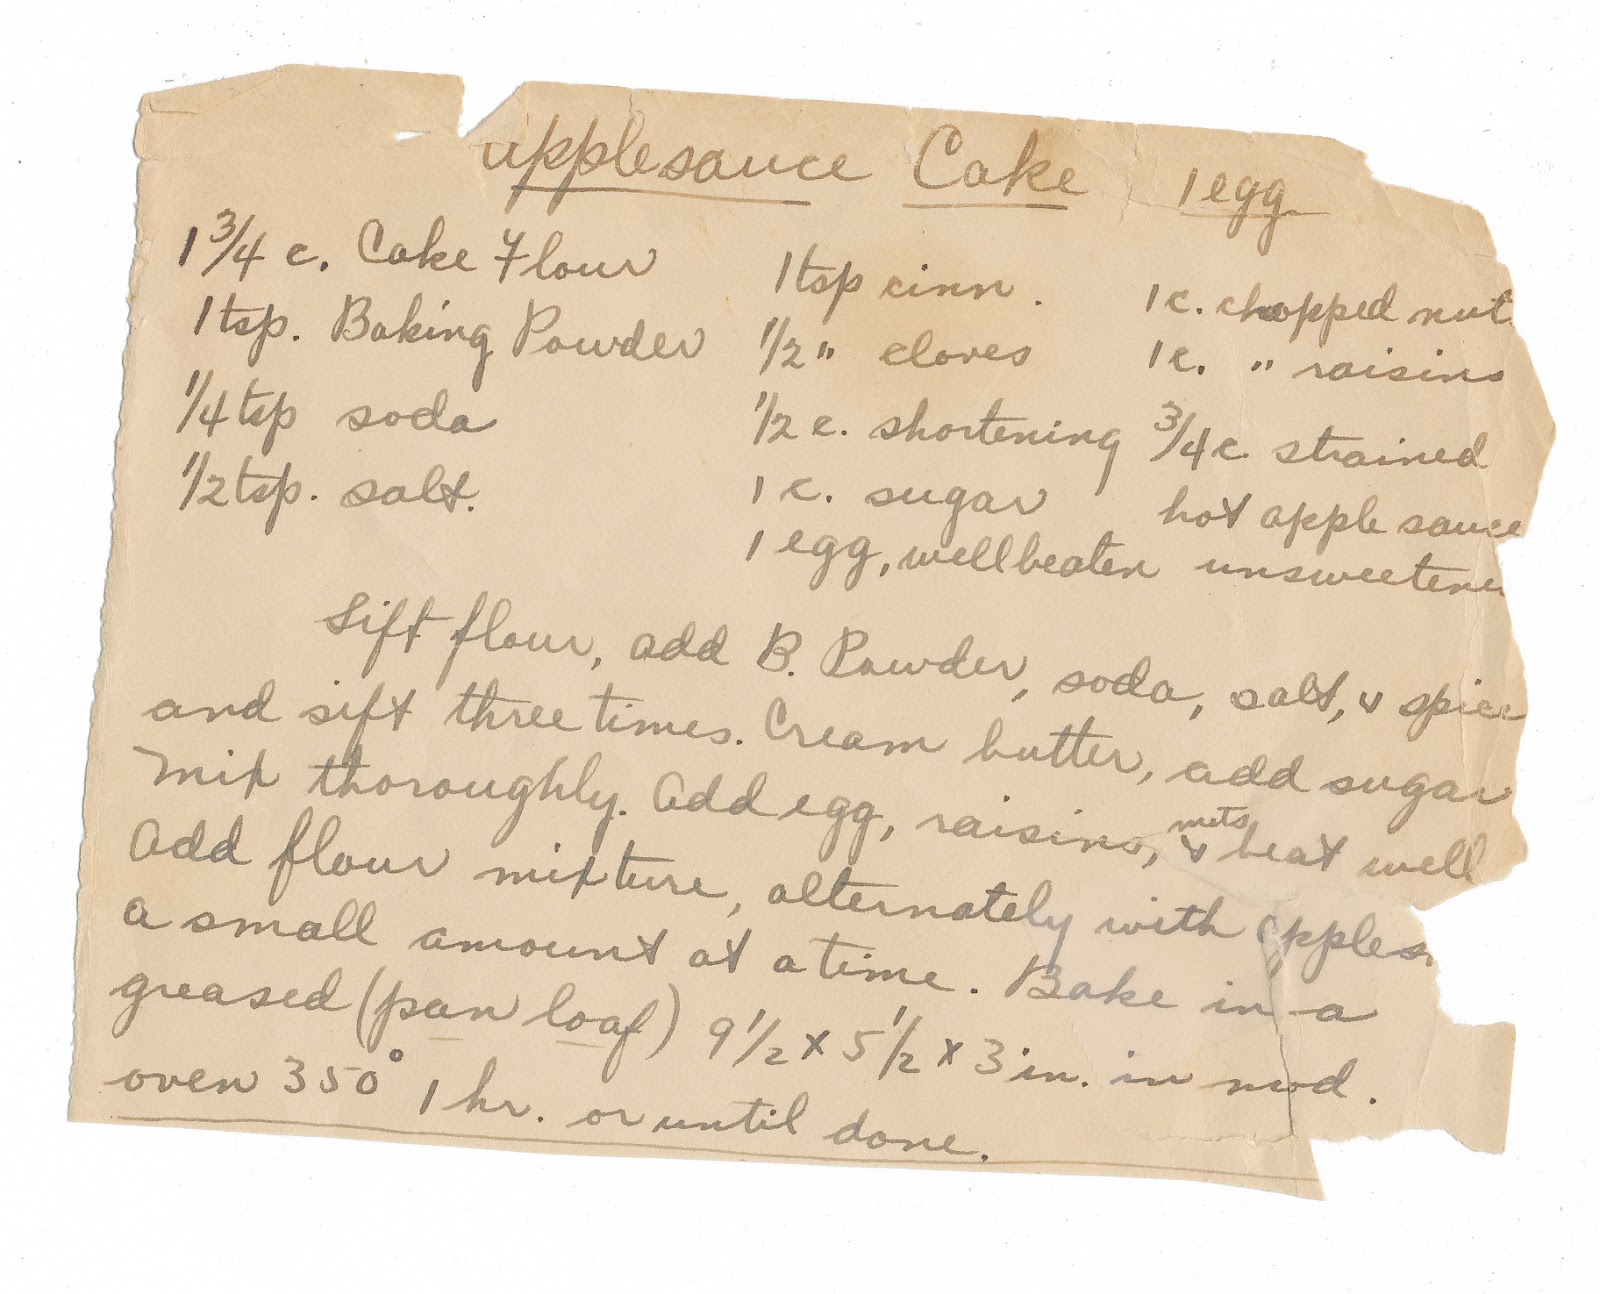 applesauce Cake 1 egg
1 3/4 c. Cake Flour
1 tsp. Baking Powder
1/4 tsp soda
1/2 tsp. salt.
1 tsp cinn.
1/2 " cloves
1/2 c. shortening
1 c. sugar
1 egg, well beaten
1 c. chopped nut
1 c. " raisins
3/4 c. strained
hot apple sauce
unsweetene
Sift flour, add B. Powder, soda, salt, & spice
and sift three times. Cream butter, add sugar
mix thoroughly. Add egg, raisins, nuts & beat well
Add flour mixture, alternately with apples
a small amount at a time. Bake in a
greased (pan loaf) 9 1/2 x 5 1/2 x 3 in. in mod.
oven 350° 1 hr. or until done.